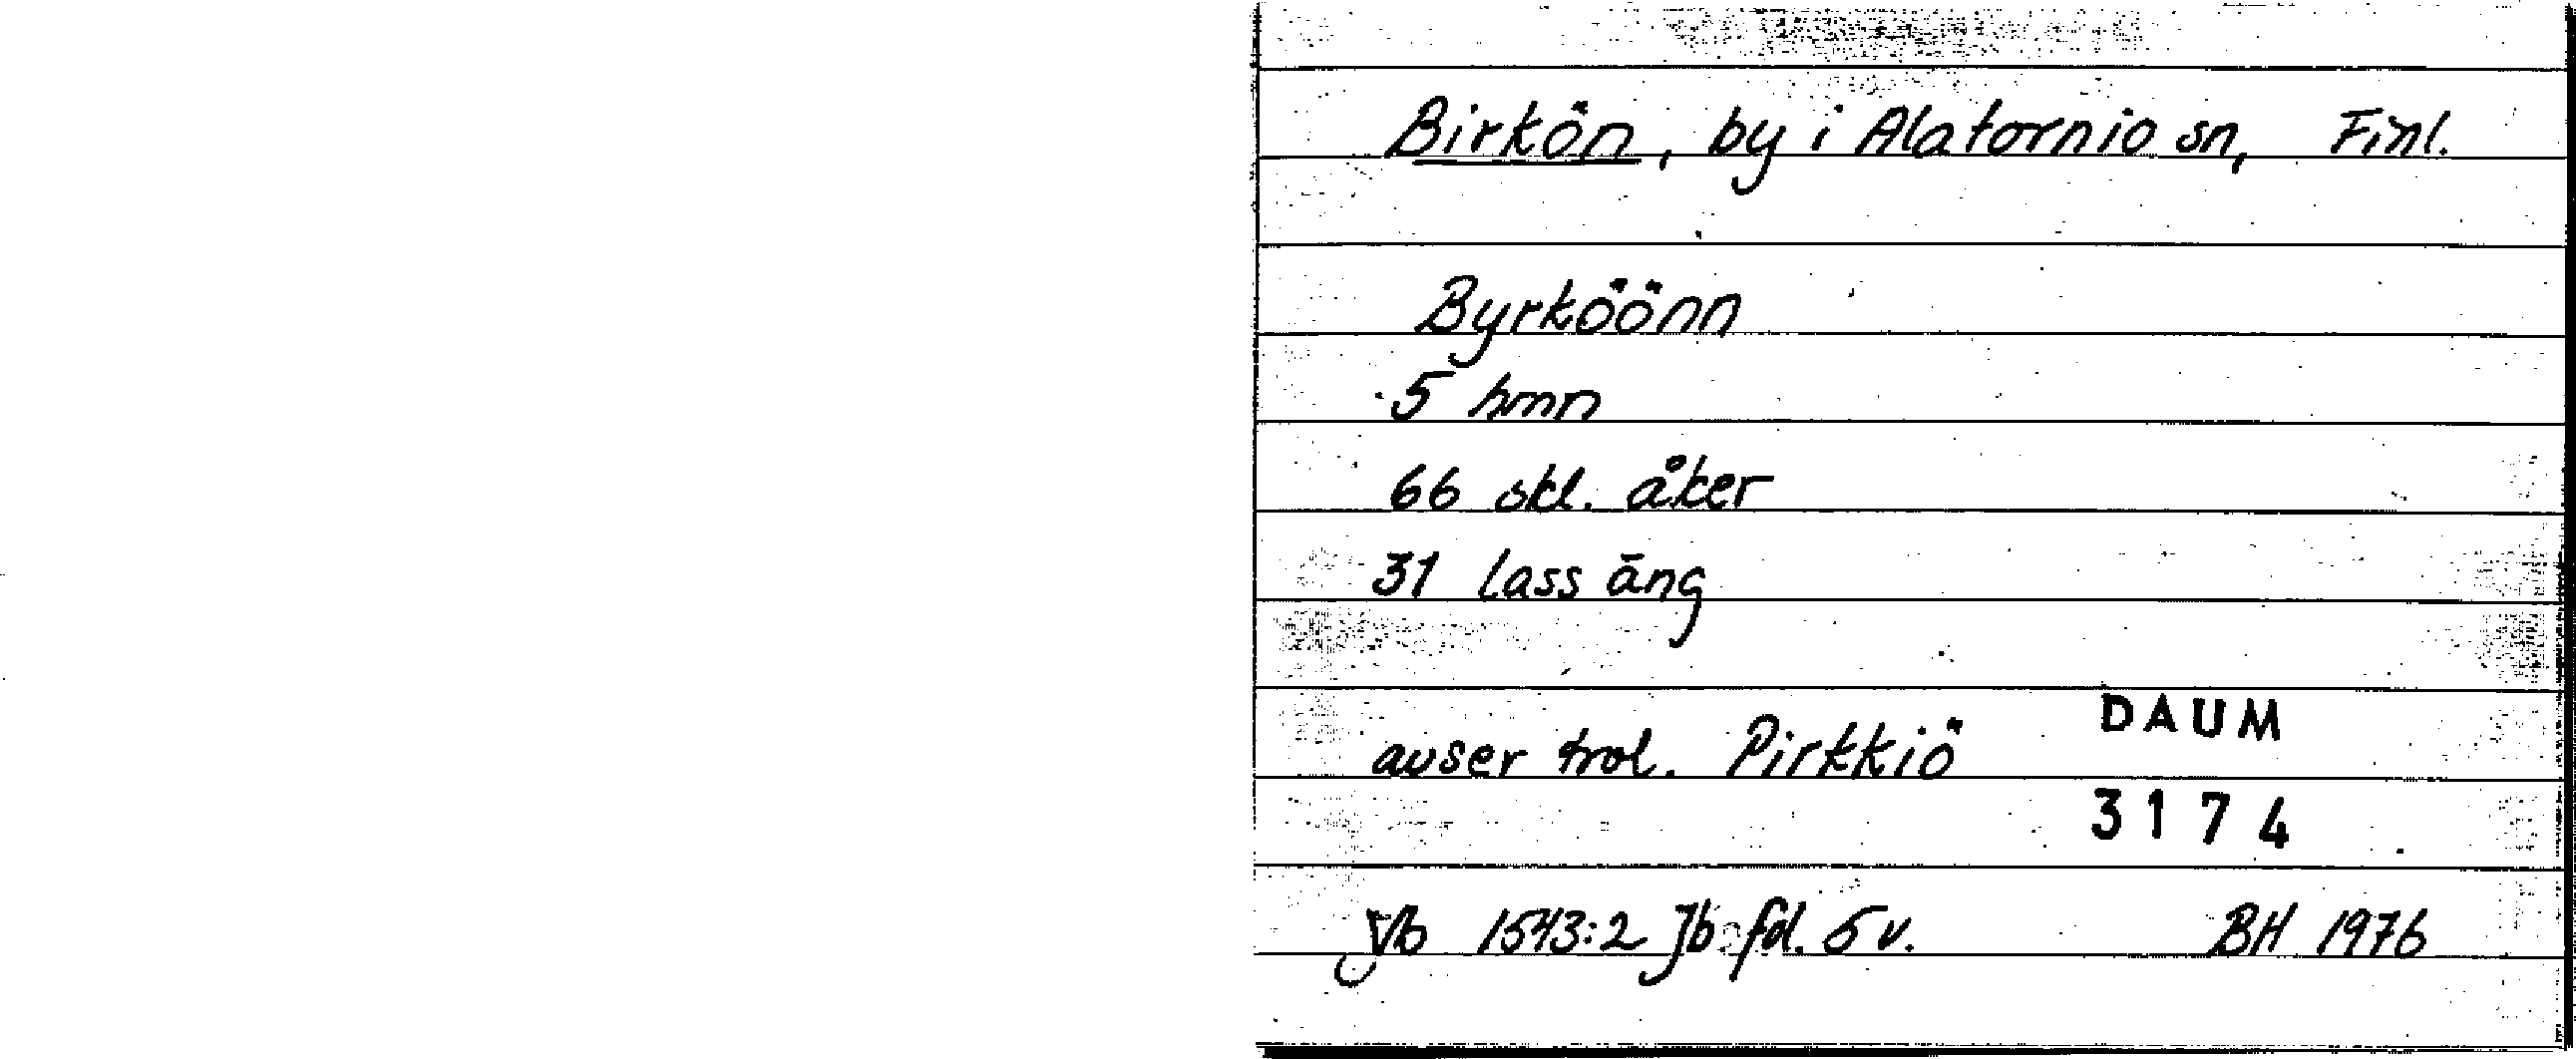 Birkön, by i Alatornio sn, Finl.
Byrköönn
5 hmn
66 skl. åker
31 lass äng
avser trol. Pirkkiö
DAUM
3174
Vb 1543:2 Jb fol. 5 v. BH 1976